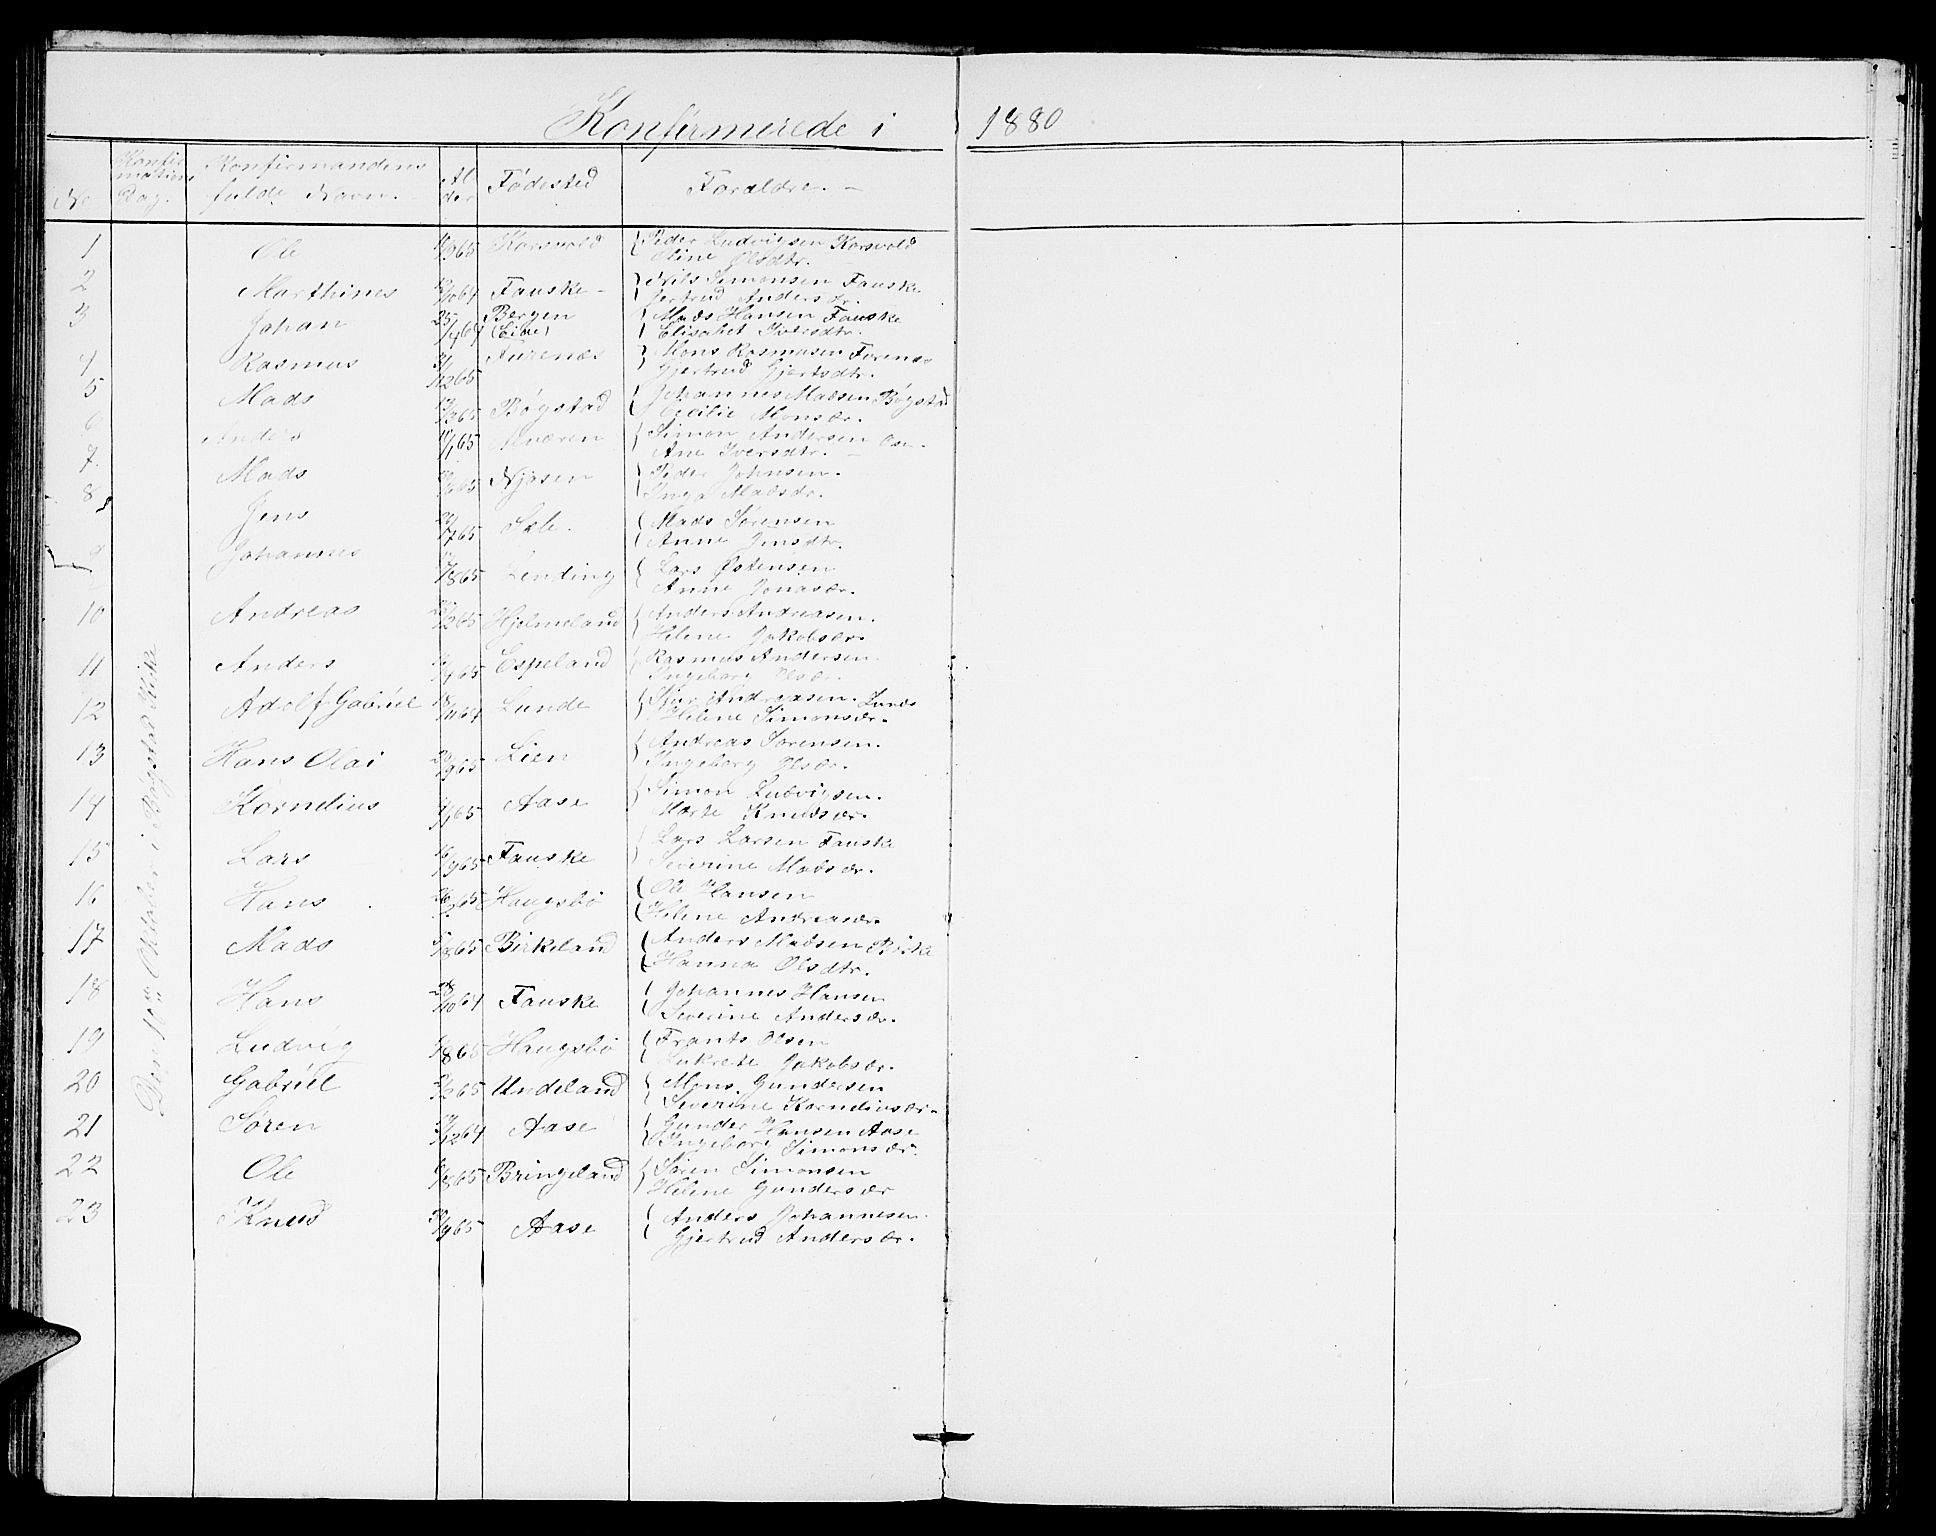 Konfirmerede i 1880
No Konfirmations Dag. Konfirmandens fulde Navn. Alder Fødested Foraldre. –
Den 10de Oktober i Bøgstad Kirke
1 Ole 65 Korsvold Peder Ludvigsen Korsvold
Stine Olsdtr.
2 Marthines 64 Fauske – Nils Simonsen Fauske
Gjertrud Andersdr.
3 Johan 25/4 64 Bergen (Eine) Mads Hansen Fauske
Elisabet Iversdtr.
4 Rasmus 65 Furenæs Mons Rasmusen Furenæs
Gjertrud Gjertsdtr.
5 Mads 65 Bøgstad Johannes Madsen Bøgstad
Cecilie Monsdr.
6 Anders 65 Simon Andersen
Ane Iversdtr. –
7 Mads 65 Njøsen Peder Johnsen.
Inga Madsdr.
8 Jens 65 Mads Sørensen
Anne Jensdtr.
9 Johannes 65 Lending Lars Østensen
Anne Jonasdr.
10 Andreas 65 Hjelmeland Anders Andreasen.
Helene Jakobsdr.
11 Anders 65 Espeland Rasmus Andersen.
Ingeborg Olsdr.
12 Adolf Gabriel 18/11 64 Lunde Sjur Andreasen Lunde
Helene Simonsdr.
13 Hans Olai 65 Lien Andreas Sørensen.
Ingeborg Olsdr.
14 Kornelius 65 Aase Simon Ludvigsen.
Marte Knudsdr.
15 Lars 65 Fauske Lars Larsen Fauske
Severine Madsdr.
16 Hans 65 Haugsbø Ole Hansen
Helene Andreasdr.
17 Mads 65 Birkeland Anders Madsen
Hanna Olsdtr.
18 Hans 28/10 64 Fauske Johannes Hansen
Severine Andersdr.
19 Ludvig 65 Haugsbø Frants Olsen
Lukrete Jakobsdr.
20 Gabriel 65 Undeland Mons Gundersen
Severine Korneliusdr.
21 Søren 64 Aase Gunder Hansen Aase
Ingeborg Simonsdr.
22 Ole 65 Bringeland Søren Simonsen
Helene Gundersdr
23 Knud 65 Aase Anders Johannesen.
Gjertrud Andersdr.